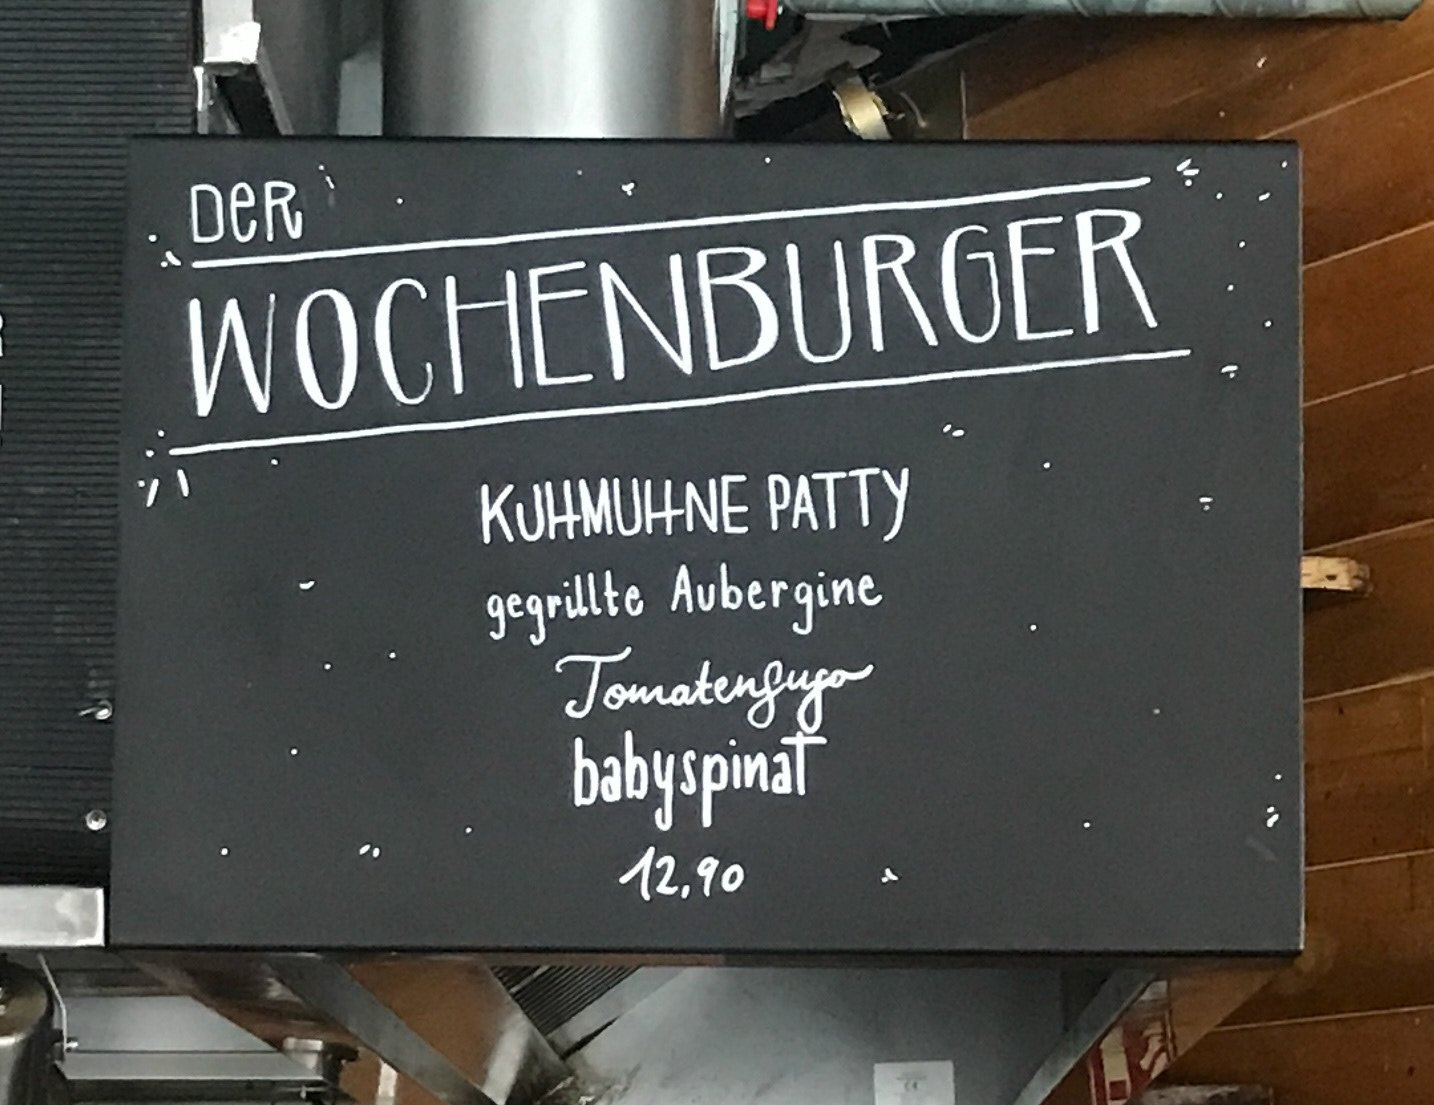 DER
WOCHENBURGER
KUHMUHNE PATTY
gegrillte Aubergine
Tomatensugo
babyspinat
12,90